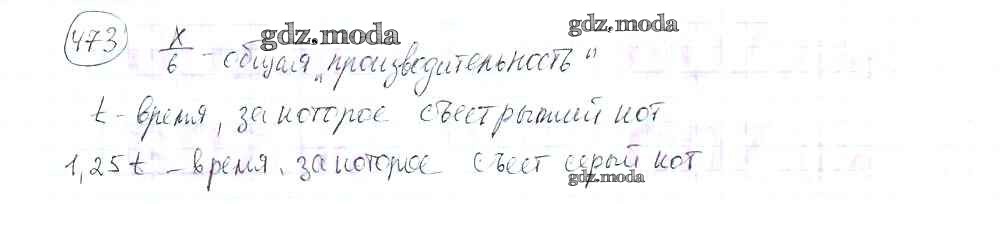 473) x/6 - общая „производительность"
t - время, за которое съест рыжий кот
1,25t - время, за которое съест серый кот
gdz.moda
gdz.moda
gdz.moda